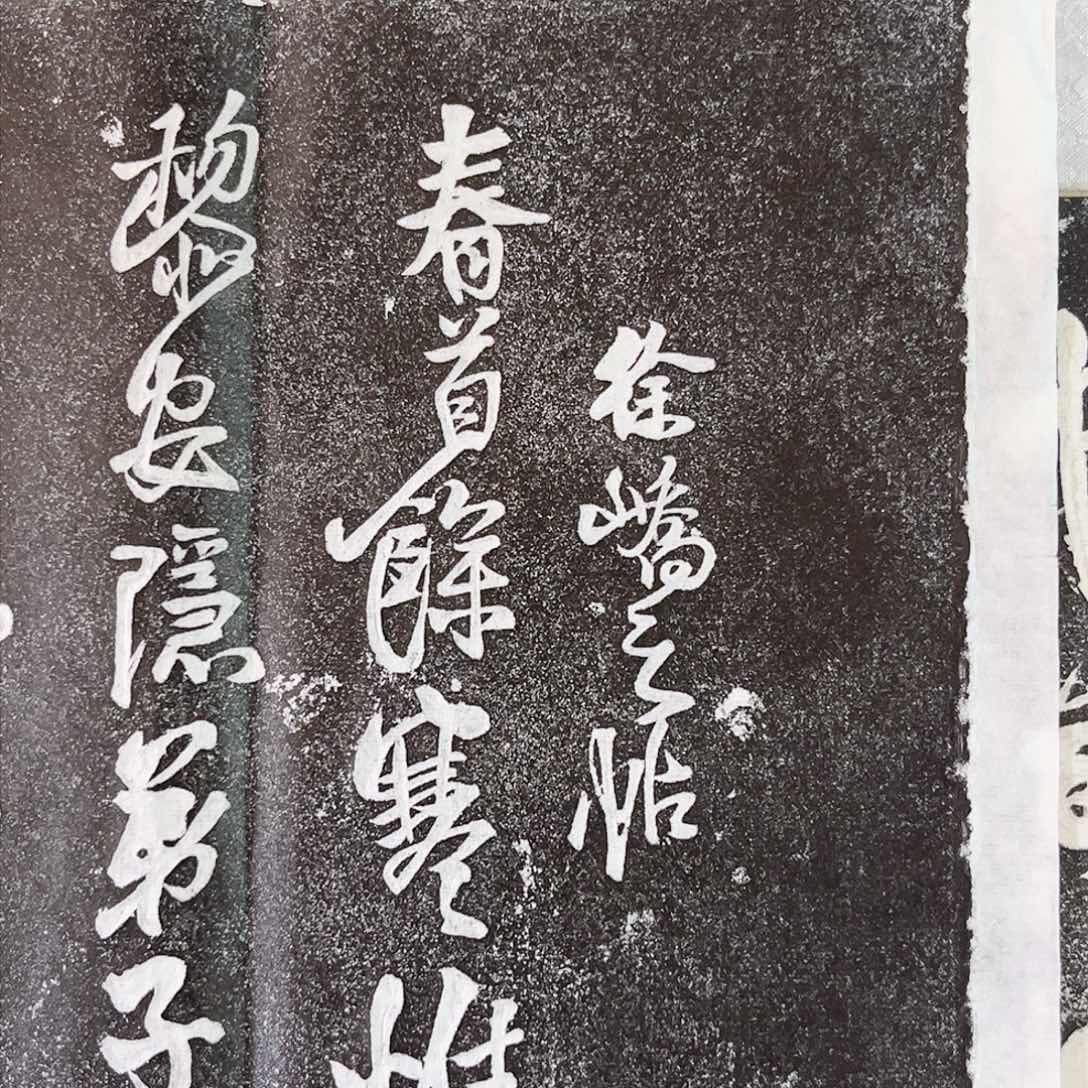 徐嶠之帖
春首餘寒惟
黎安隱弟子